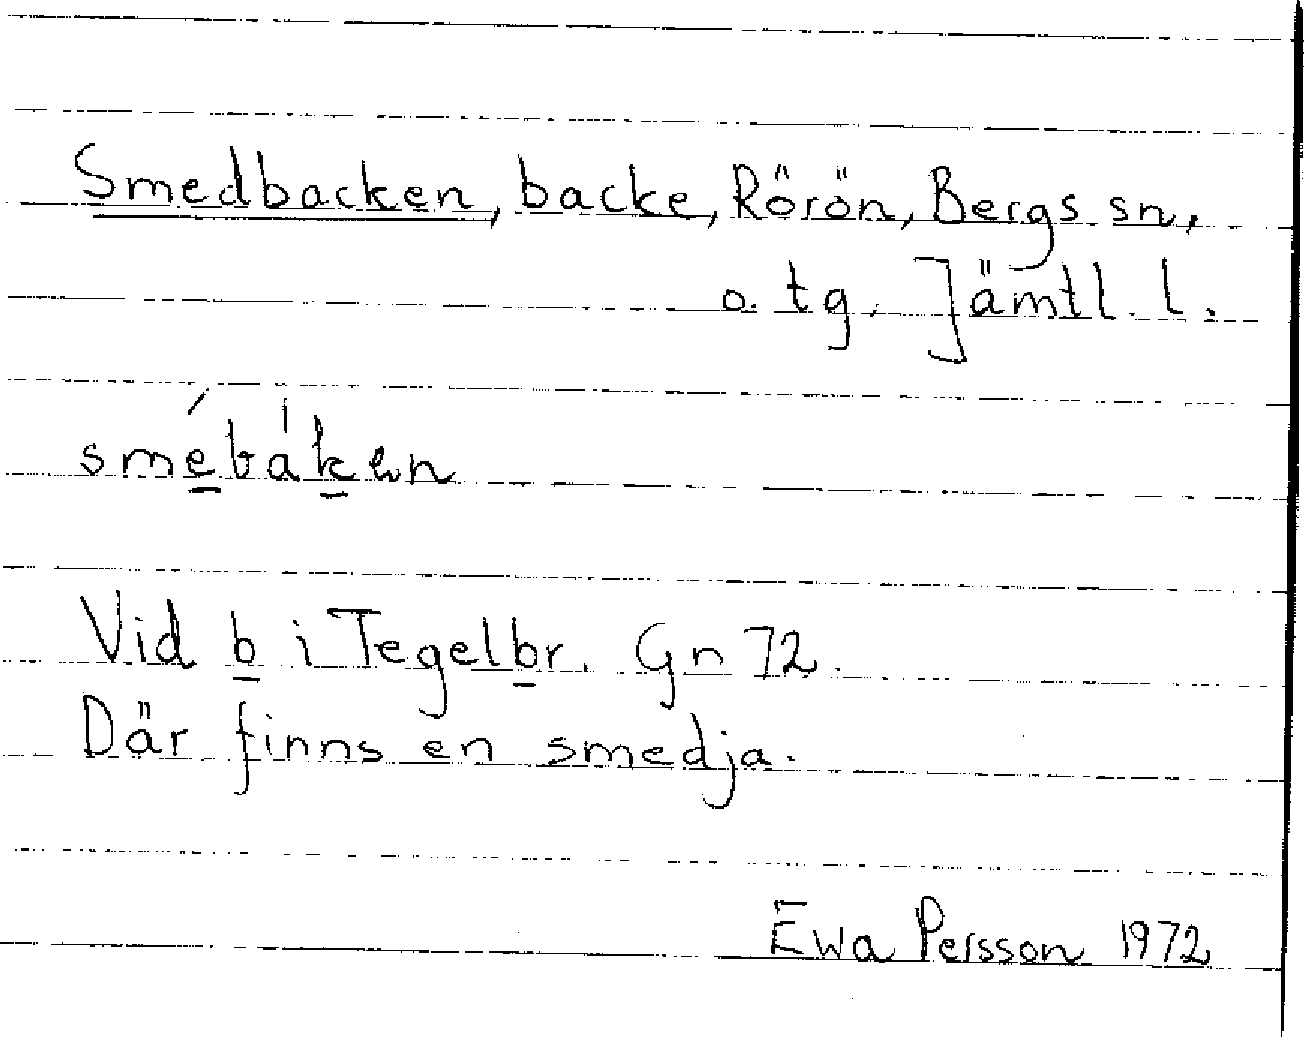 Smedbacken, backe, Rörön, Bergs sn,
o. tg. Jämtl. l.
smébàken
Vid b i Tegelbr. Gn 72.
Där finns en smedja.
Ewa Persson 1972